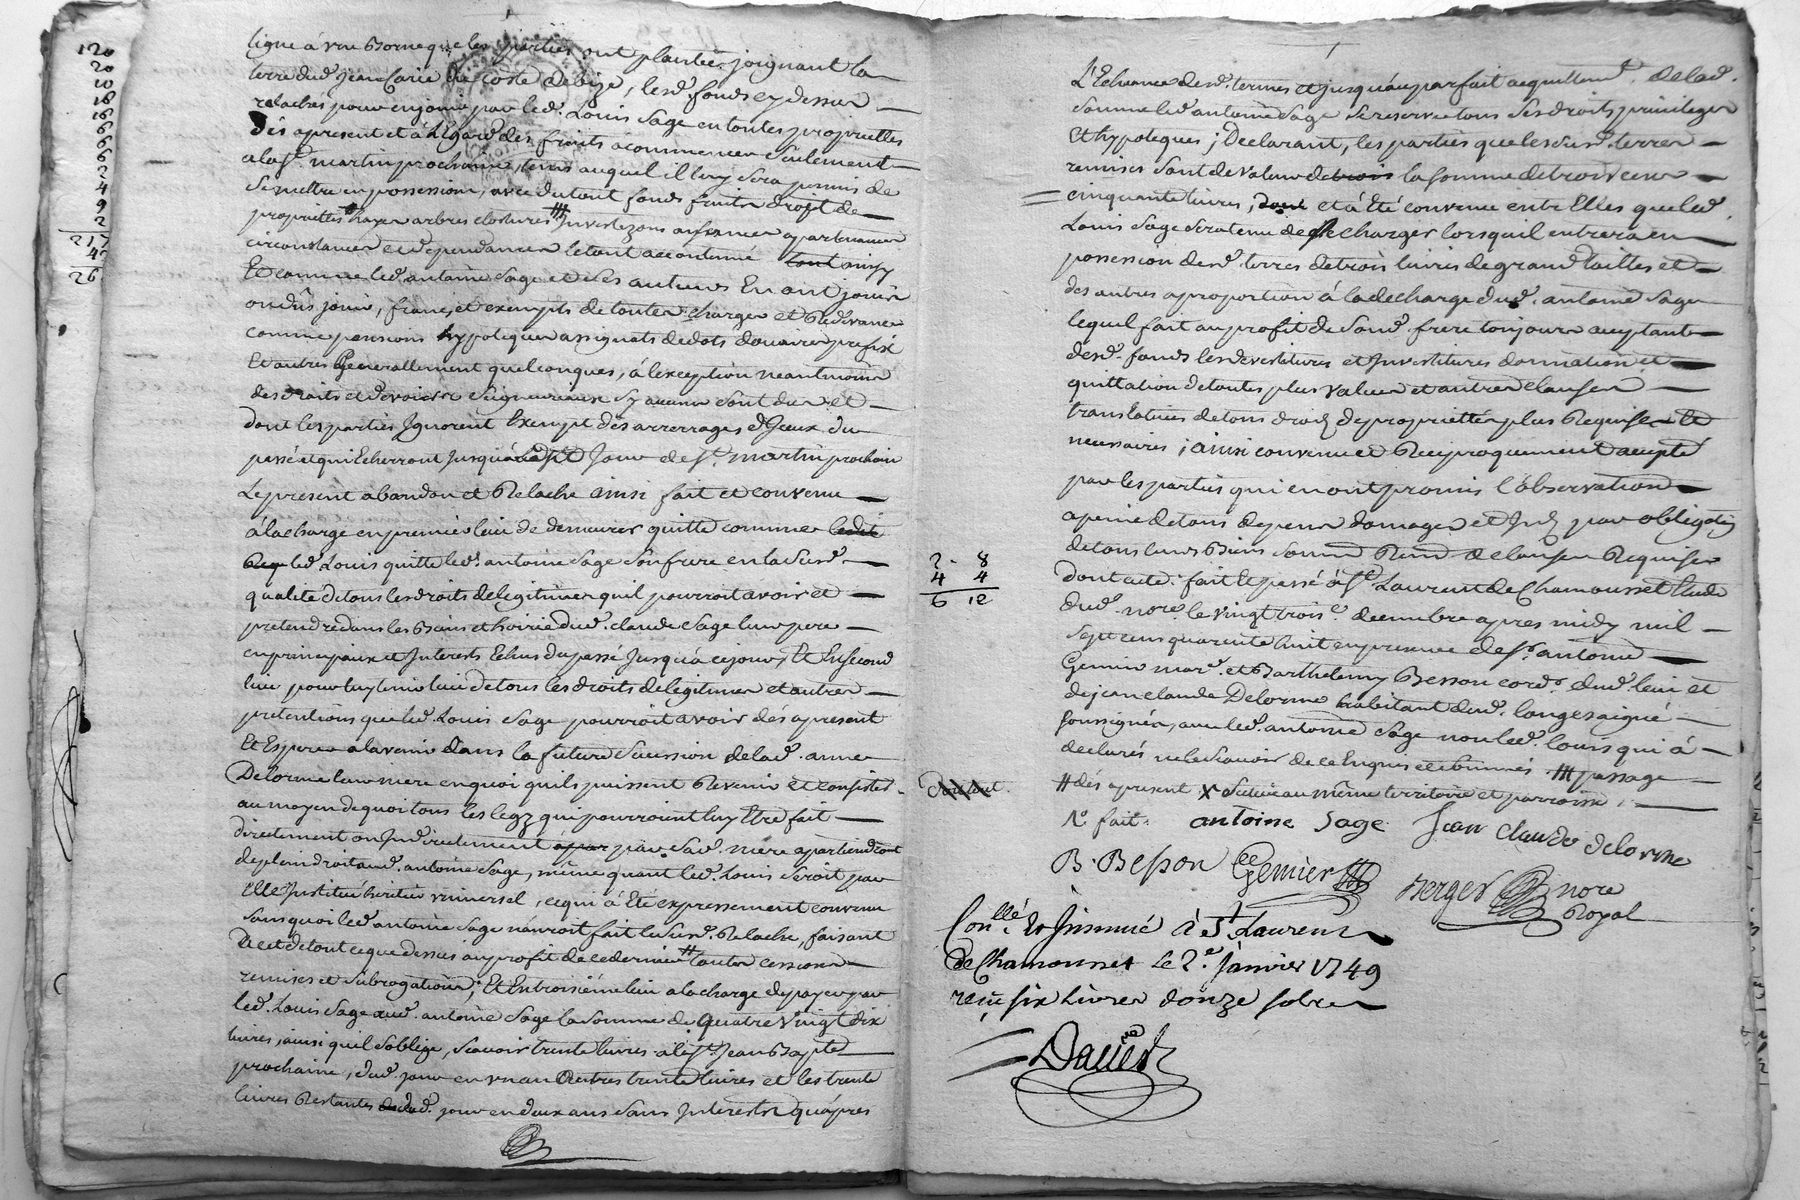 120
20
10
18
16
6
6
6
2
4
9
2
217
47
26
ligne à une Borne que les parties ont plantée joignant la
terre dud. jean Carié de coste de bize, lesd. fonds cy dessus
relachés pour en jouir par led. Louis Sage en toutes proprietés
dés apresent et à l'égard des fruits à commencer seulement
a la St. martin prochaine, tems auquel il luy sera permis de
se mettre en possession, avec du tout fonds fruits droit de
proprietés # hayes arbres clostures ## Investizons aisances apartenances
circonstances et dependances le tout accoutumé tout ainsy
Et comme led. antoine Sage et ses auteurs En ont jouis
ou dûs jouir, francs et exempts de toutes charges et Redevances
comme pensions hypoteques assignats de dots douaires prefix
Et autres Generallement quelconques, à l'exception neantmoins
des droits et devoirs Seigneuriaux sy aucuns sont dus et
dont les parties Ignorent Exempt des arrerrages d'Iceux du
passé et qui Echerront Jusqu'audit Jour de St. martin prochain
Le present abandon et Relache ainsi fait et convenu
à la charge en premier lieu de demeurer quitte comme ledit
led. Louis quitte led. antoine Sage son frere en la susd.
qualité de tous les droits de legitimes qu'il pourroit avoir et
pretendre dans les Biens et hoirie dud. claude Sage leur pere
en principaux et Interests Echus du passé Jusqu'à ce jour, Et En second
lieu pour luy tenir lieu de tous les droits de legitimes et autres
pretentions que led. Louis Sage pourroit avoir dés apresent
Et Esperer a l'avenir dans la future sucession de lad. anne
Delorme leur mere en quoi qu'ils puissent Revenir et consister
au moyen de quoi tous les legz qui pourroient luy Etre fait
directement ou Indirectement par sad. mere apartiendront
de plein droit aud. antoine Sage, même quant led. Louis seroit par
Elle Institué heritier universel, ce qui à Eté expressement convenu
sans quoi led. antoine Sage n'auroit fait le susd. Relache, faisant
De et de tout ce que dessus au profit de ce dernier # toutes cessions
remises et subrogations, Et En troisième lieu a la charge de payer par
led. Louis Sage aud. antoine Sage la somme de quatre vingt dix
livres, ainsi qu'il s'oblige, scavoir trente livres a la St. Jean Bapte
prochaine, dud. jour en un an Autres trente livres et les trente
livres Restantes dud. jour en deux ans sans Interests qu'apres
L'Echeance desd. termes et jusqu'au parfait acquittement de lad.
somme led. antoine Sage se reserve tous ses droits privileges
Et hypoteques ; Declarant, les parties que les susd. terres
remises sont de valeur de trois la somme de trois cens
cinquante livres, dont et à Eté convenu entre Elles que led.
Louis Sage sera tenu de se charger lorsqu'il entrera en
possession desd. terres de trois livres de grand tailles et
des autres a proportion à la decharge dud. antoine Sage
lequel fait au profit de sond. frere toujours aceptant
desd. fonds les devestitures et Investitures donnation et
quittation de toutes plus values et autres clauses
translatives de tous droits de proprietté plus Requises et
necessaires ; ainsi convenu et Reciproquement accepté
par les parties qui en ont promis l'observation
a peine de tous depens domages et Int. par obligation
de tous leurs Biens soumis Renon. de clauses Requises
2 - 8
4 4
6 12
Dont acte : fait et passé à St. Laurent de Chamousset Etude
dud. nore. le vingt trois e. decembre apres midy mil
sept cens quarente huit en presence de Sr. antoine
Gemier mar.e et Barthelemy Besson cord.r dud. lieu et
de jean claude Delorme habitant dud. longesaigne
soussignés, avec led. antoine Sage non led. Louis qui à
declarés ne le scavoir de ce Enquis et sommés . ## passage
# dés apresent x située au même territoire et parroisse .
R. fait . antoine Sage Jean claude delorme
B. Besson Gemier
Berger nore
Royal
Conllé. Et Insinué à St. Laurent
de Chamousset le 2.e Janvier 1749
reçu six livres douze sols